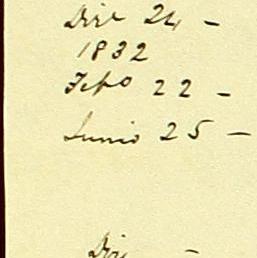 Dice 24 -
1832
Febo 22 -
Junio 25 -